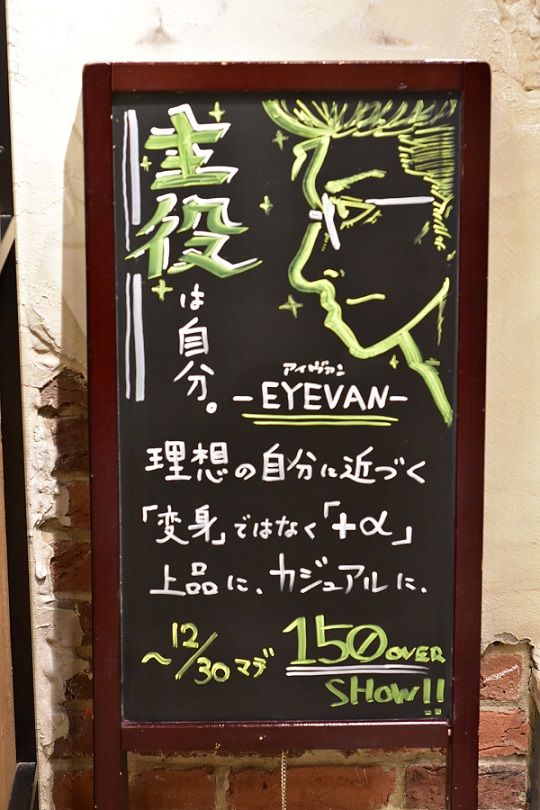 主役
は自分。
アイヴァン
-EYEVAN-
理想の自分に近づく
「変身」ではなく「+α」
上品に、カジュアルに、
～12/30マデ
150 OVER
SHOW!!